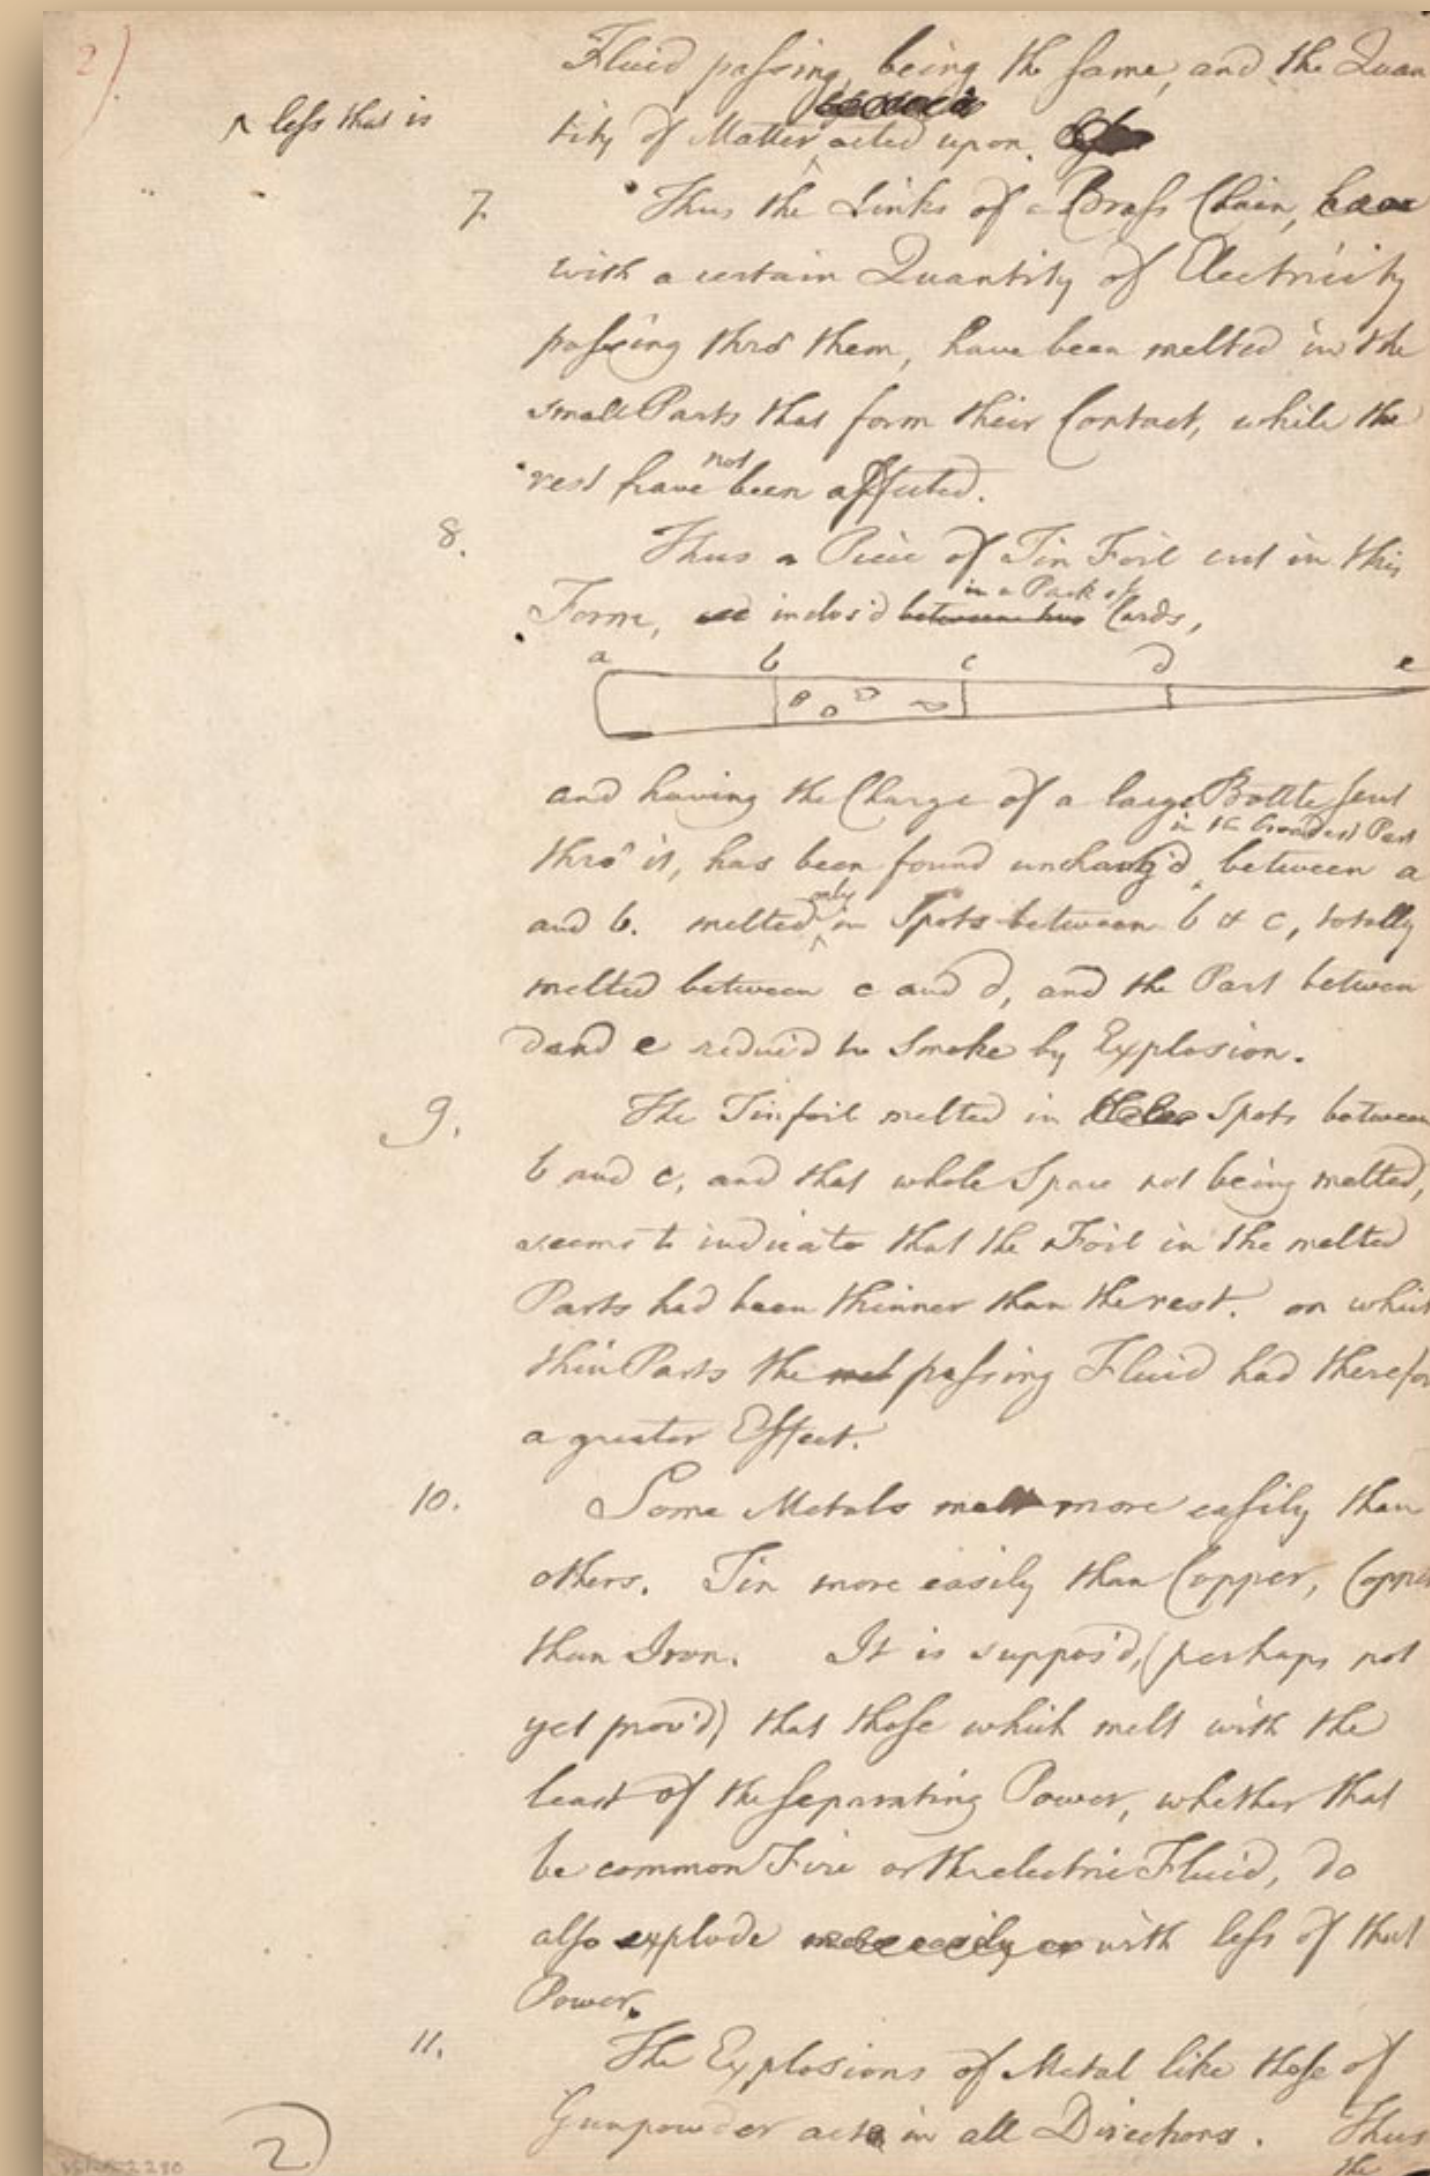 2)
Fluid passing, being the same, and the Quan
^ less that is
tity of Matter ^ acted upon.
7. Thus the Links of a Brass Chain,
with a certain Quantity of Electricity
passing thro' them, have been melted in the
small Parts that form their Contact, while the
not
rest have been affected.
8. Thus a Piece of Tin Foil cut in this
in a Pack of
Form, inclos'd between two Cards,
a b c d e
and having the Charge of a large Bottle sent
in the broadest Part
thro' it, has been found unchang'd ^ between a
only
and b. melted ^ in Spots between b & c, totally
melted between c and d, and the Part between
d and e reduc'd to Smoke by Explosion.
9. The Tinfoil melted in Spots between
b and c, and that whole Space not being melted,
seems to indicate that the Foil in the melted
Parts had been thinner than the rest. on which
thin Parts the passing Fluid had therefor
a greater Effect.
10. Some Metals melt more easily than
others. Tin more easily than Copper, Copper
than Iron. It is suppos'd, (perhaps not
yet prov'd) that those which melt with the
least of the separating Power, whether that
be common Fire or the electric Fluid, do
also explode more easily or with less of that
Power.
11. The Explosions of Metal like those of
Gunpowder act in all Directions. Thus
the
2)